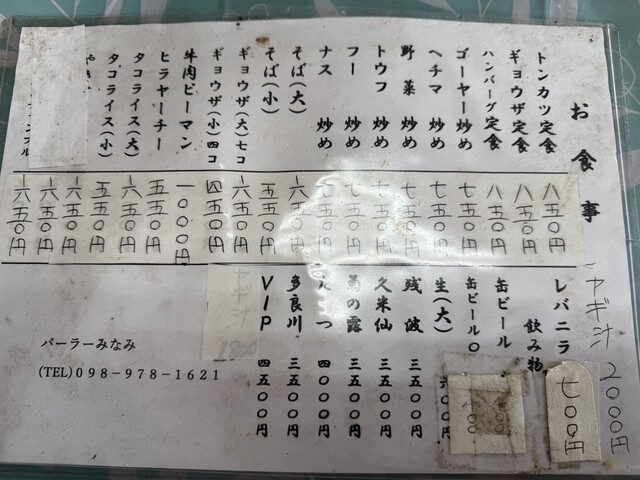 お食事
トンカツ定食 八五〇円
ギョウザ定食 八五〇円
ハンバーグ定食 八五〇円
ゴーヤー炒め 七五〇円
ヘチマ 炒め 七五〇円
野菜 炒め 七五〇円
トウフ 炒め 七五〇円
フー 炒め 七五〇円
ナス 炒め 七五〇円
そば(大) 六五〇円
そば(小) 五五〇円
ギョウザ(大)七コ 六五〇円
ギョウザ(小)四コ 四五〇円
牛肉ピーマン 一〇〇〇円
ヒラヤーチー 五五〇円
タコライス(大) 六五〇円
タコライス(小) 五五〇円
六五〇円
六五〇円
六五〇円
ヤギ汁 2000円
レバニラ 七〇〇円
飲み物
缶ビール
缶ビール〇
生(大) 六〇〇円
残波 三五〇〇円
久米仙 三五〇〇円
菊の露 三五〇〇円
四〇〇〇円
多良川 三五〇〇円
VIP 四五〇〇円
ヤギ汁
パーラーみなみ
(TEL)098-978-1621